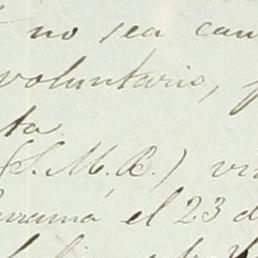 no sea cau
voluntario,
ta
(S. M. B.) vi
anamá el 23 d